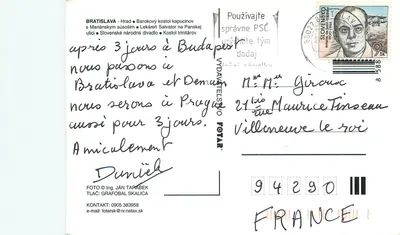 BRATISLAVA - Hrad • Barokový kostol kapucínov
s Mariánskym súsoším • Lekáreň Salvator na Panskej
ulici • Slovenské národné divadlo • Kostol trinitárov
après 3 jours à Budapest
nous passons à
Bratislava et Demain
nous serons à Prague
aussi pour 3 jours.
Amicalement
FOTO © Ing. JÁN TARÁBEK
TLAČ: GRAFOBAL SKALICA
KONTAKT: 0905 383958
e-mail: fotarsk@nr.netax.sk
VYDAVATEĽSTVO FOTAR
Používajte
správne PSČ
urýchlite tým
dodaj
SLOVENSKO
Mr Me Giroux
21 bis
rue Maurice
Villeneuve le roi
94290
FRANCE